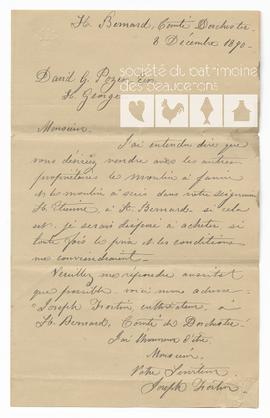 St. Bernard, Comté Dorchester
8 Décembre 1890.
David G. Pozer, Ecr
St. George
société du patrimoine
des beaucerons
Monsieur,
J'ai entendu dire que
vous désiriez vendre avec les autres
propriétaires le moulin à farine
et le moulin à scie dans votre seigneurie
St. Etienne, à St. Bernard. si cela
est, je serais disposé à acheter si
toute fois le prix et les conditions
me conviendraient.
Veuillez me répondre aussitôt
que possible. voici mon adresse
"Joseph Fortin, cultivateur, à
St. Bernard, Comté de Dorchester.
J'ai l'honneur d'être
Monsieur,
Votre Serviteur
Joseph Fortin